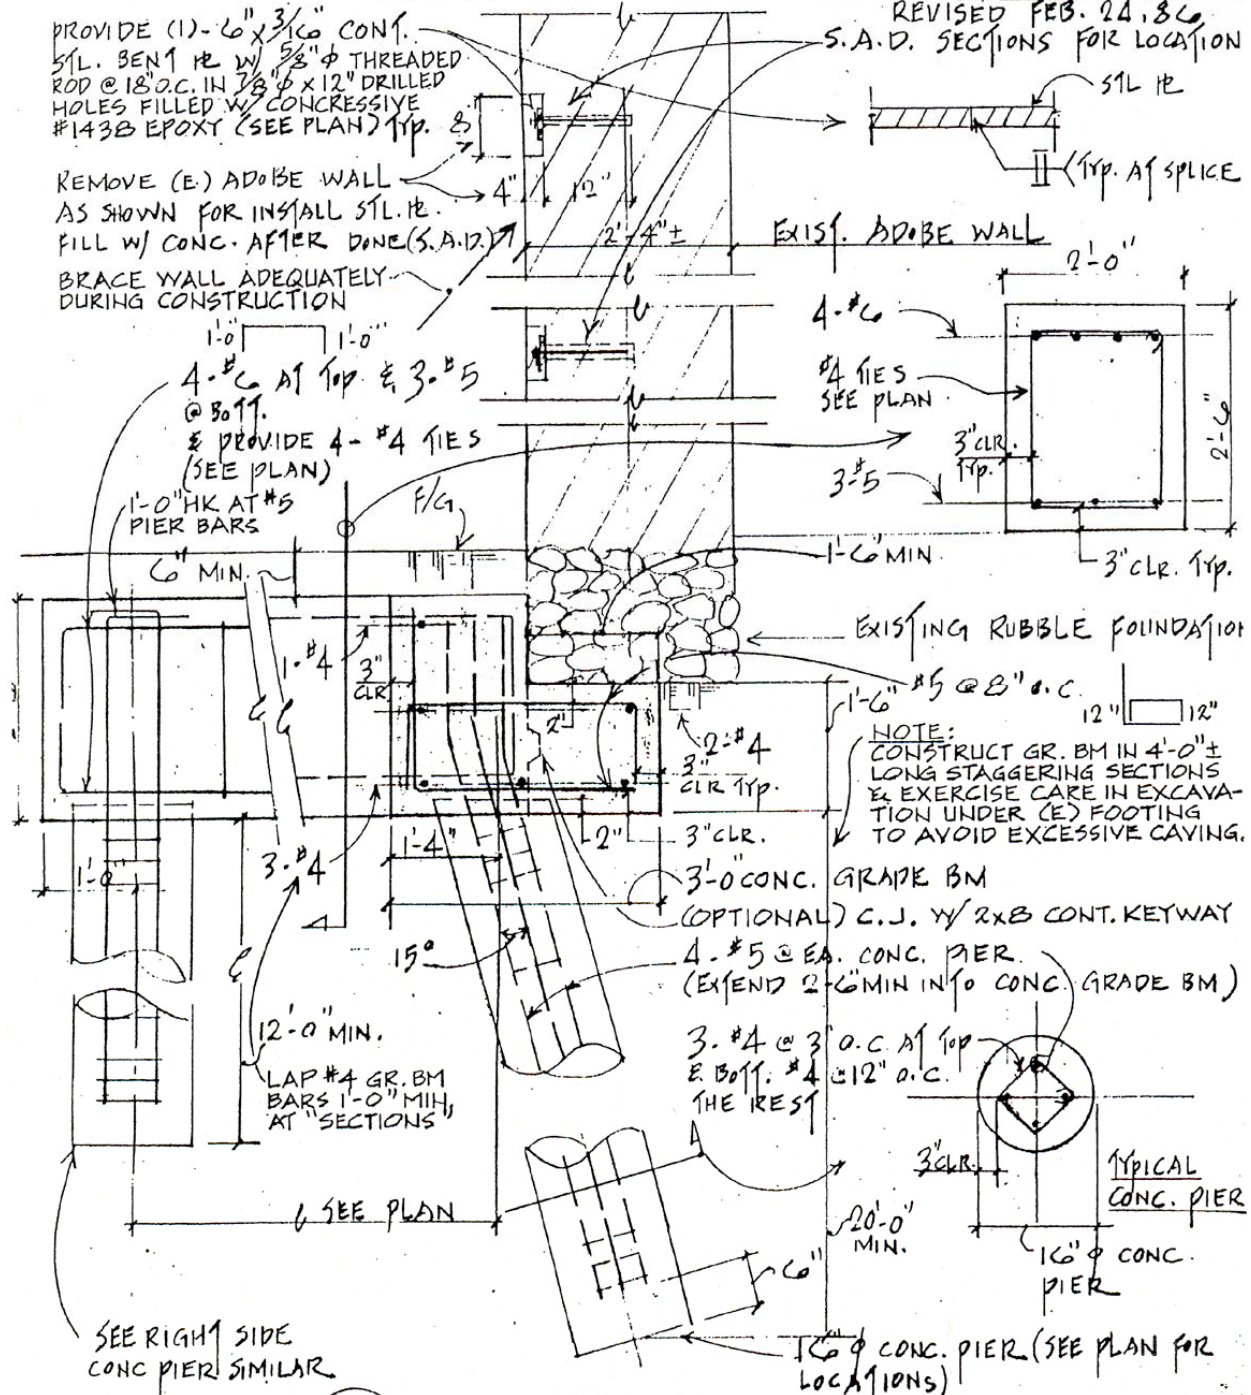 REVISED FEB. 24, 86
PROVIDE (1)- 6" x 3/16" CONT.
STL. BENT PL W/ 5/8" φ THREADED
ROD @ 18" O.C. IN 7/8" φ x 12" DRILLED
HOLES FILLED W/ CONCRESSIVE
#1438 EPOXY (SEE PLAN) TYP.
8"
S.A.D. SECTIONS FOR LOCATION
STL PL
(TYP. AT SPLICE
REMOVE (E.) ADOBE WALL
AS SHOWN FOR INSTALL STL. PL.
FILL W/ CONC. AFTER DONE (S.A.D.)
4"
12"
2'-4" ±
EXIST. ADOBE WALL
BRACE WALL ADEQUATELY
DURING CONSTRUCTION
1'-0" 1'-0"
4-#6 AT TOP & 3-#5
@ BOTT.
& PROVIDE 4-#4 TIES
(SEE PLAN)
1'-0" HK AT #5
PIER BARS
F/G
2'-0"
4-#6
#4 TIES
SEE PLAN
3" CLR.
TYP.
2'-6"
3-#5
3" CLR. TYP.
6" MIN.
1'-6" MIN.
EXISTING RUBBLE FOUNDATION
1-#4
3"
CLR
2"
1'-6"
#5 @ 8" O.C.
12" 12"
2-#4
3"
CLR TYP.
NOTE:
CONSTRUCT GR. BM IN 4'-0" ±
LONG STAGGERING SECTIONS
& EXERCISE CARE IN EXCAVA-
TION UNDER (E) FOOTING
TO AVOID EXCESSIVE CAVING.
1'-0"
3-#4
1'-4"
2"
3" CLR.
3'-0" CONC. GRADE BM
(OPTIONAL) C.J. W/ 2x8 CONT. KEYWAY
15°
4-#5 @ EA. CONC. PIER.
(EXTEND 2'-6" MIN INTO CONC. GRADE BM)
12'-0" MIN.
LAP #4 GR. BM
BARS 1'-0" MIN.
AT "SECTIONS"
3-#4 @ 3" O.C. AT TOP
& BOTT. #4 @ 12" O.C.
THE REST
3" CLR.
TYPICAL
CONC. PIER
SEE PLAN
20'-0"
MIN.
6"
16" φ CONC.
PIER
SEE RIGHT SIDE
CONC PIER SIMILAR
16" φ CONC. PIER (SEE PLAN FOR
LOCATIONS)